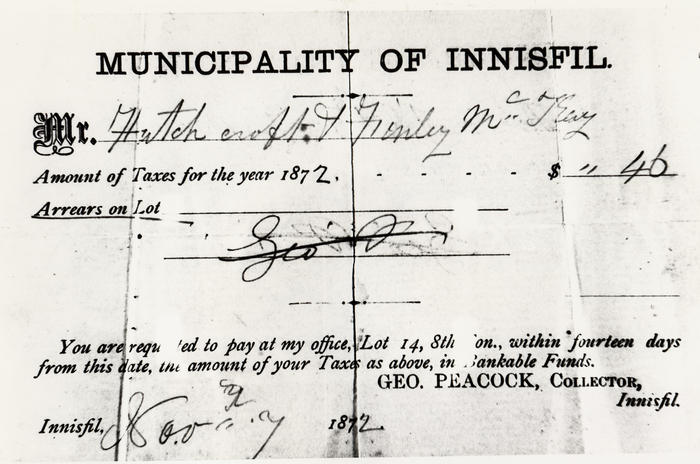 MUNICIPALITY OF INNISFIL.
Mr. Hutchcroft & Finley McKay
Amount of Taxes for the year 1872. - - - - $ " 46
Arrears on Lot
Geo
You are requ ted to pay at my office, Lot 14, 8th on., within fourteen days
from this date, the amount of your Taxes as above, in ankable Funds.
GEO. PEACOCK, COLLECTOR,
Innisfil.
Innisfil, Nov 1872.